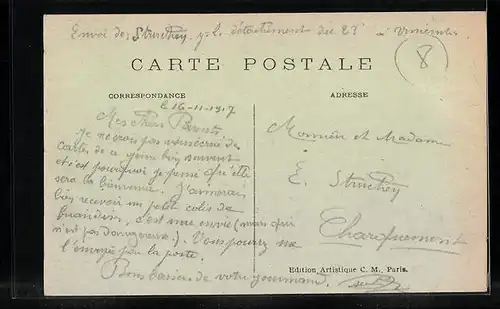 Envoi de Struchey détachement du 23
8
CARTE POSTALE
CORRESPONDANCE
ADRESSE
le 16-11-1917
Mes chers Parents
Je ne crois pas
cartes de ce
et c'est pourquoi je pense qu'elle
sera la bienvenue. J'aimerais
bien recevoir un petit colis de
c'est une envie (mais qui
n'est pas dangereuse.) Vous pouvez me
l'envoyer par la poste.
Bons baisers de votre gourmand.
Monsieur et Madame
E. Struchey
Charquemont
Edition Artistique C. M., Paris.